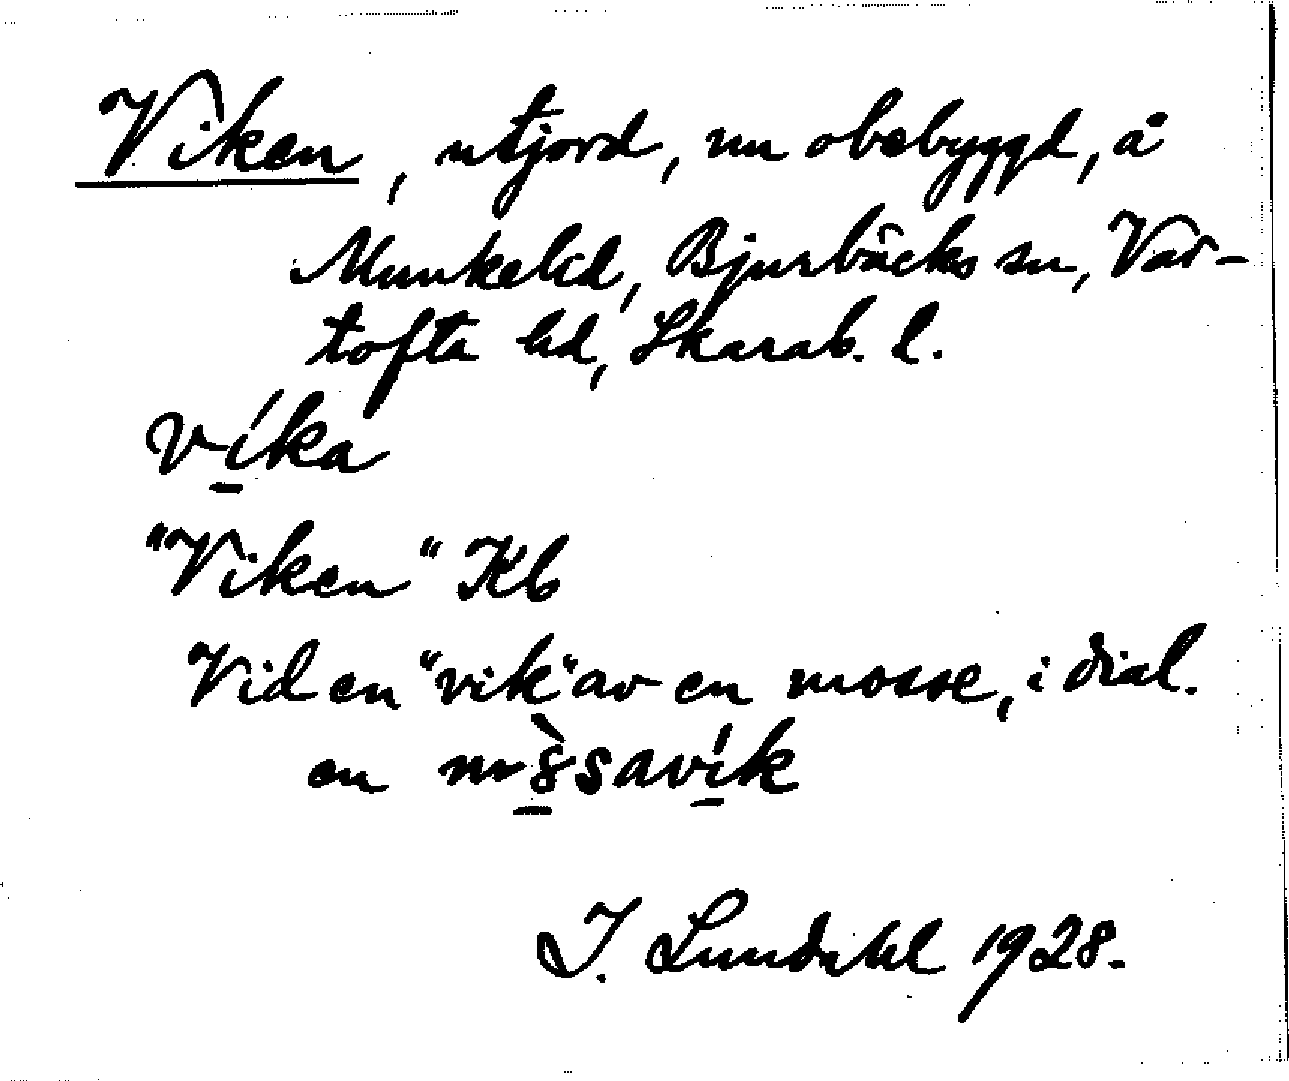 Viken, utjord, nu obebyggd, å
Munkelid, Bjurbäcks sn, Var-
tofta hd, Skarab. l.
víka
"Viken" Kb
Vid en "vik" av en mosse, i dial.
en
I. Lundahl 1928.